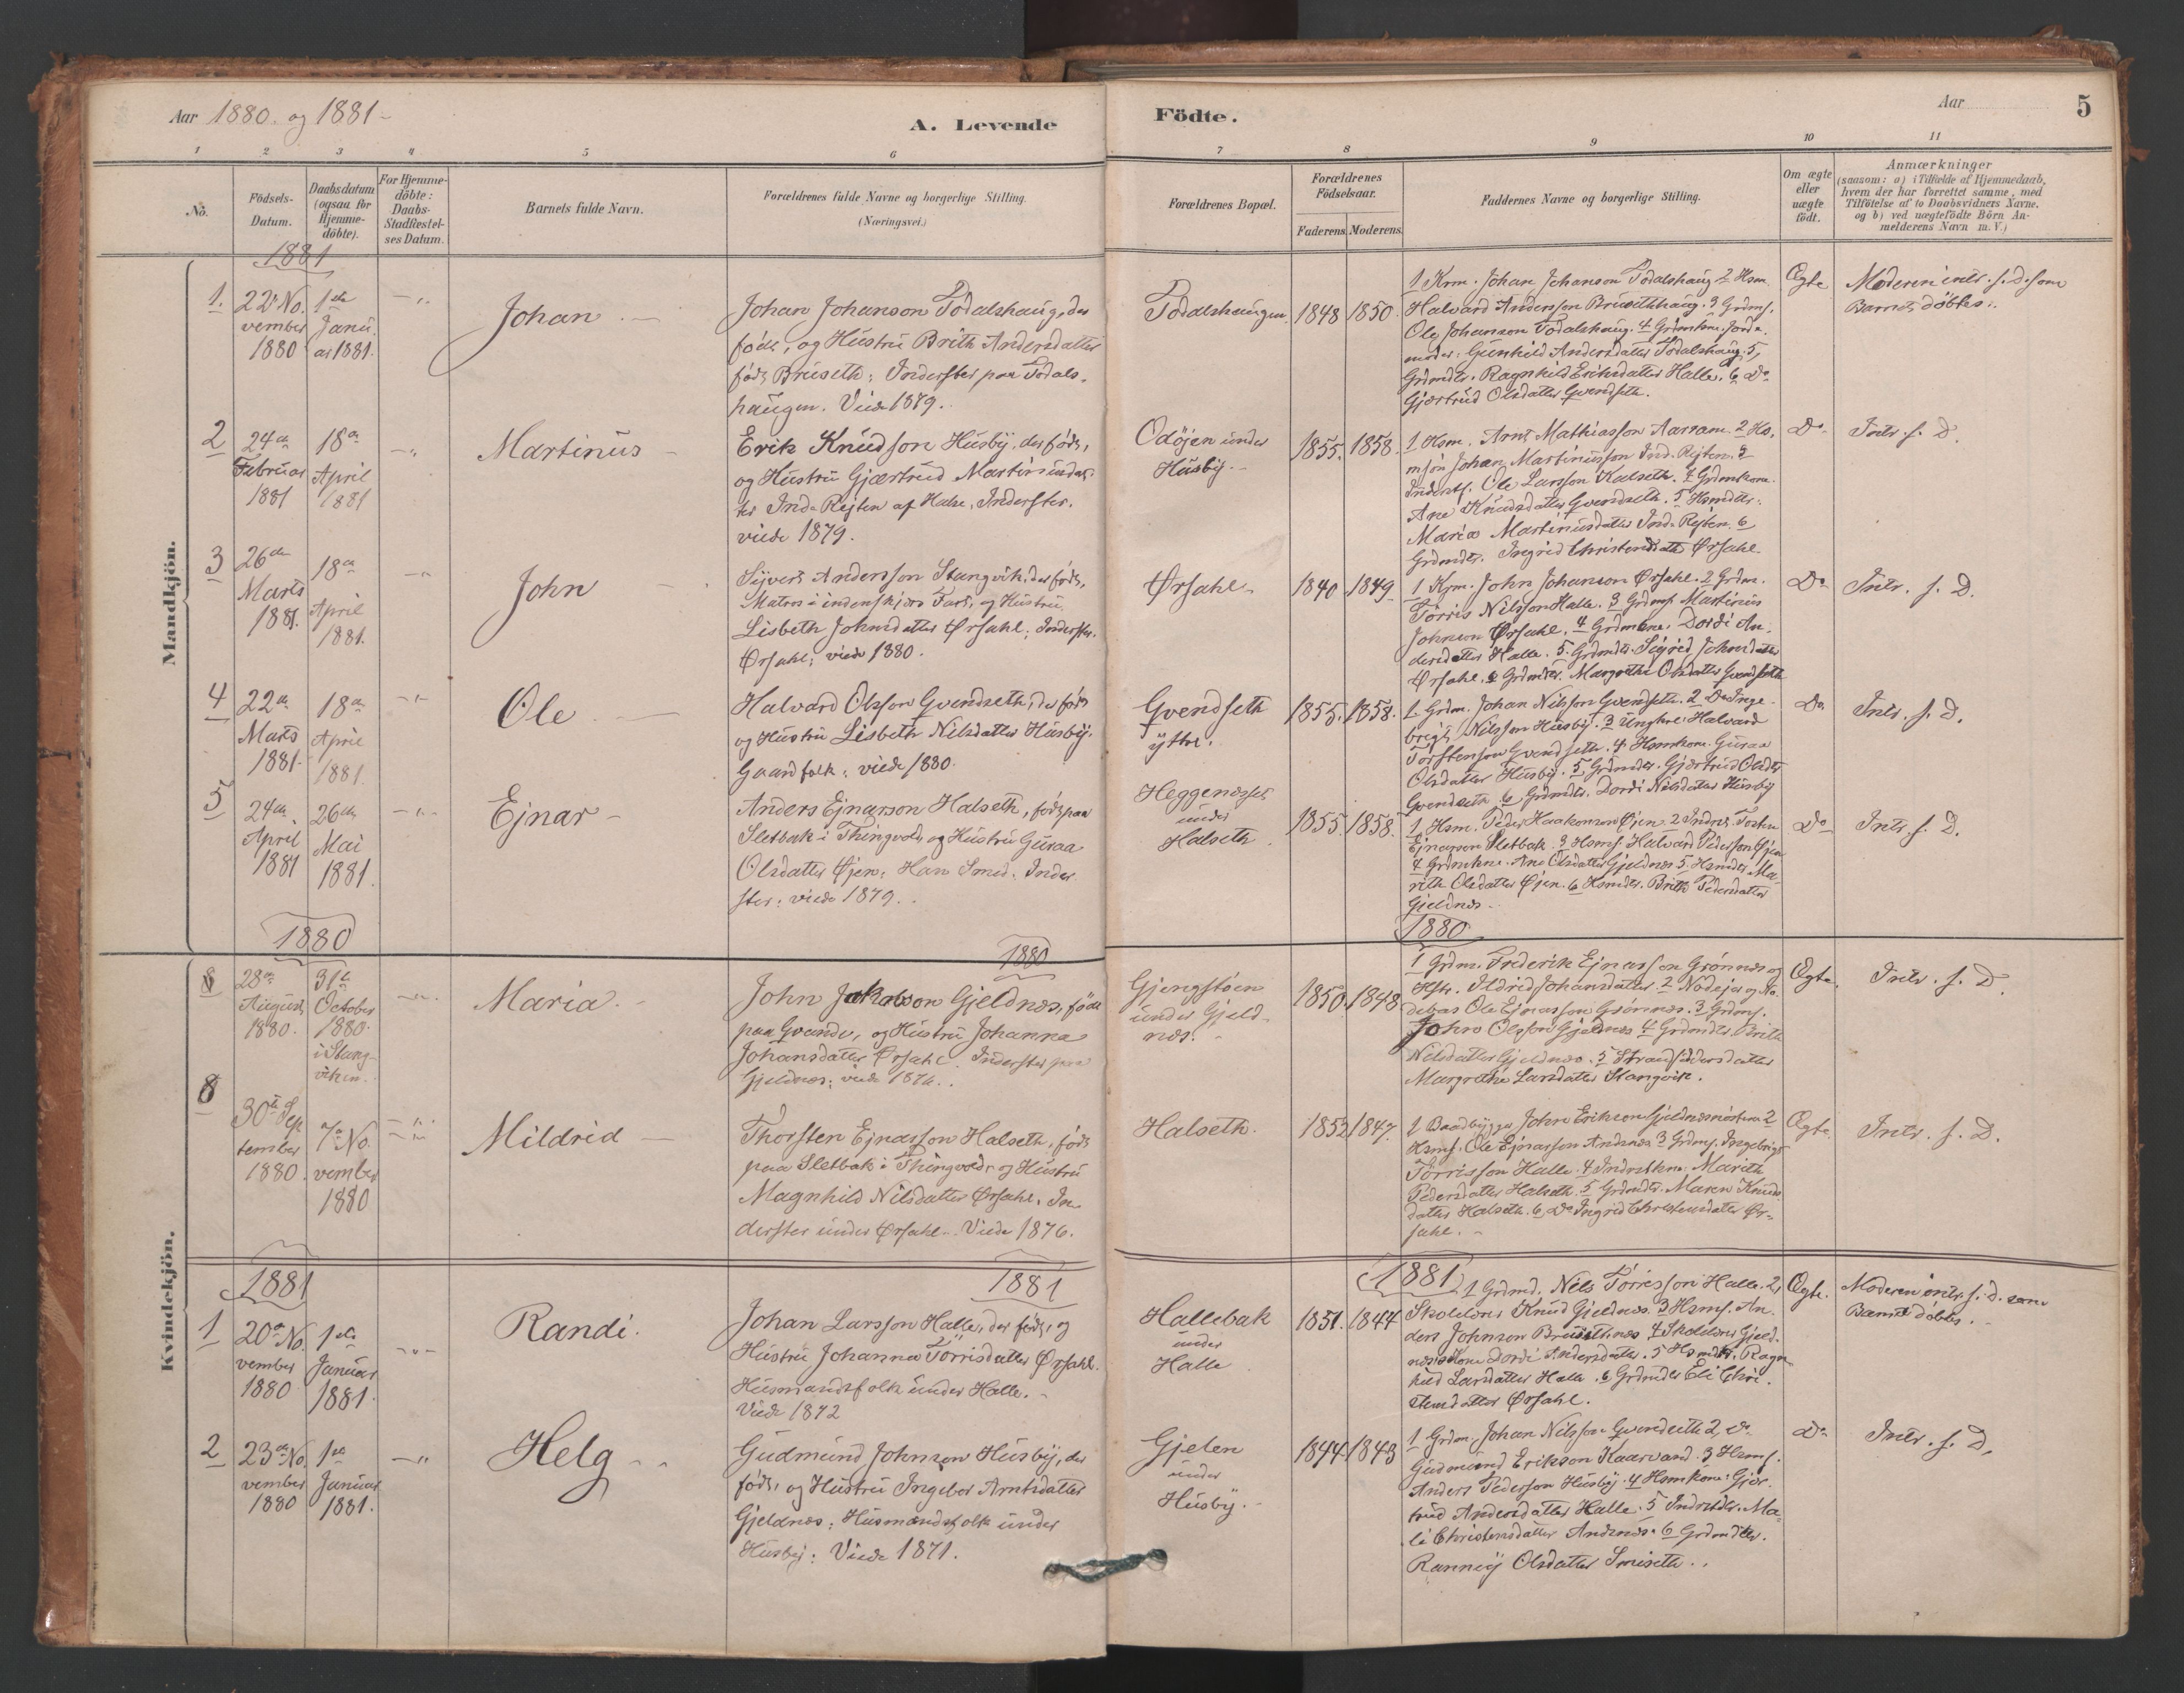 Aar 1880. og 1881 -
A. Levende
Födte.
Aar
5
1 2 3 4 5 6 7 8 9 10 11
No.
Födsels-
Datum.
Daabsdatum
(ogsaa for
Hjemme-
döbte).
For Hjemme-
döbte:
Daabs-
Stadfæstel-
ses Datum.
Barnets fulde Navn.
Forældrenes fulde Navne og borgerlige Stilling.
(Næringsvei.)
Forældrenes Bopæl.
Forældrenes
Födselsaar.
Faderens. Moderens.
Faddernes Navne og borgerlige Stilling.
Om ægte
eller
uægte
födt.
Anmærkninger
(saasom: a) i Tilfælde af Hjemmedaab,
hvem der har forrettet samme, med
Tilföielse af to Daabsvidners Navne.
og b) ved uægtefödte Börn An-
melderens Navn m.V.)
Mandkjön.
1881
1.
22de No
vember
1880
1ste
Janu
ar 1881.
Johan
Johan Johanson Todalshaug, der
födt, og Hustru Brith Andersdatter
födt Bruseth; Inderster paa Todals-
haugen. Viede 1879.
Todalshaugen
1848 1850
1 Krm. Johan Johanson Todalshaug 2 Hsm.
Halvard Andersson Brusethhaug. 3 Grdms.
Ole Johanson Todalshaug. 4 Grdmkne. Jorde
moder: Gunhild Andersdatter Todalshaug. 5,
Grdmdtr. Ragnhild Eriksdatter Halle. 6 Do
Gjærtrud Olsdatter Qvendseth.
Ægte
Moderen intr. s. d. som
Barnet döbtes.
2
24de
Februar
1881
18de
April
1881
Martinus
Erik Knudson Husby, der födt,
og Hustru Gjærtrud Martinusdat-
ter Ind. Rejten af Halse, Inderster.
viede 1879.
Odöjen under
Husby.
1855. 1858.
1 Hsm. Arnt Mathiasson Aarram. 2 Hs,
msön Johan Martinusson Ind. Rejten. 3
Inderst. Ole Larsson Kalseth. 4 Grdmkone.
Ane Knudsdatter Qvendseth. 5 Hsmdtr.
Maria Martinusdatter Ind. Rejten. 6
Grdmdtr. Ingrid Christensdatt Ørsahl.
Do
Intr. s. D.
3
26de
Marts
1881.
18de
April
1881.
John
Sivert Andersson Stangvik, der födt,
Matros i indenskjærs Fart, og Hustru
Lisbeth Johnsdatter Ørsahl; Inderster.
Ørsahl; viede 1880.
Ørsahl
1840 1849
1 Krm. John Johanson Ørsahl. 2 Grdm.
Törris Nilsson Halle. 3 Grdms. Martinus
Johnson Ørsahl. 4 Grdmkne. Dordi An,
dersdatter Halle. 5. Grdmdtr. Sigrid Johnsdatter
Ørsahl. 6 Grdmdtr. Margrethe Olsdatter Qvendseth
Do
Intr. s. D.
4
22de
Marts
1881.
18de
April
1881.
Ole
Halvard Olsson Qvendseth, der födt
og Hustru Lisbeth Nilsdatter Husby.
Gaardfolk; viede 1880.
Qvendseth
ytre.
1855. 1858.
1 Grdm. Johan Nilsson Qvendseth. 2 Do Inge-
brigt Nilsson Husby. 3 Ungkrl Halvard
Torstenson Qvendseth. 4 Hsmkone. Guraa
Olsdatter Husby. 5 Grdmdtr. Gjærtrud Olsdtr
Qvendseth. 6 Grdmdtr. Dordi Nilsdatter Husby
Do
Intr. s. D.
5
24de
April
1881
26de
Mai
1881.
Ejnar
Anders Ejnarson Halseth, födt paa
Sletbak i Thingvold, og Hustru Guraa
Olsdatter Øjen; Han Smed; Inder
ster; viede 1879.
Heggenæsset
under
Halseth
1855. 1858.
1. Hsm. Peder Haakonson Øjen 2 Indrst. Tosten
Ejnarson Sletbak. 3 Hsms. Halvard Pederson Øjen
4 Grdmkne. Ane Olsdatter Gjeldnes 5 Hsmdtr. Ma-
rith Olsdatter Øjen. 6 Hsmdtr. Brith Pedersdatter
Gjeldnes.
Do
Intr. s. D.
Kvindekjön.
1880 1880 1880
28de
August
1880.
31te
October
1880.
i Stang-
viken.
Maria.
John Jakobson Gjeldnes, födt
paa Qvande, og Hustru Johanna
Johansdatter Ørsahl. Inderster paa
Gjeldnes; viede 1876.
Gjengstöen
under Gjeld-
nes.
1850. 1848
1 Grdm. Frederik Ejnarson Grönnes og
Hstr. Ildrid Johansdatter. 2 Nodejer og No
debas Ole Ejnarsson Grönnes. 3 Grdms.
John Olsson Gjeldnes 4 Grdmdtr. Brith
Nilsdatter Gjeldnes. 5 Strandsiddersdatter
Margrethe Larsdatter Stangvik.
Ægte.
Intr. s. D.
8
30te Sep
tember
1880.
7de No
vember
1880
Mildrid
Thorsten Ejnarsson Halseth, födt
paa Sletbak i Thingvold og Hustru
Magnhild Nilsdatter Ørsahl. In
derster under Ørsahl. Viede 1876.
Halseth.
1852 1847.
1 Baadbygger John Erikson Gjeldnesmostuen 2
Hsms. Ole Ejnarsson Andenæs 3 Grdms. Ingebrigt
Törrisson Halle. 4 Indrstkne. Marith
Pedersdatter Halseth. 5 Grdmdtr. Maren Knuds
datter Halseth. 6 Do Ingrid Christensdatter Ør-
sahl.
Ægte.
Intr. s. D.
1881 1881 1881
1
20de No
vember
1880
1ste
Januar
1881.
Randi.
Johan Larsson Halle, der födt, og
Hustru Johanna Törrisdatter Ørsahl.
Husmandsfolk under Halle.
Viede 1872
Hallebak
under
Halle
1851. 1844
1 Grdmd. Nils Törrisson Halle. 2,
Skolelærer Knud Gjeldnes. 3 Hsms. An-
ders Johnson Brusethnes 4 Skolelærer Gjeld-
nes's Kone Dordi Andersdatter. 5 Hsmdtr. Ragn-
hild Larsdatter Halle. 6 Grdmdtr Eli Chri-
stensdatter Ørsahl.
Ægte.
Moderen intr. s. d. som
Barnet döbts.
2
23de No
vember
1880
1ste
Januar
1881.
Helg
Gudmund Johnson Husby, der
födt, og Hustru Ingebor Arntsdatter
Gjeldnes; Husmandsfolk under
Husby; Viede 1871.
Gjelen
under
Husby.
1844 1843
1 Grdm. Johan Nilsson Qvendseth 2, Do
Gudmund Erikson Kaarvand. 3 Hsms.
Anders Pederson Husby. 4 Hsmkone: Gjær-
trud Andersdatter Halle. 5 Indrstdtr. Ma-
li Christensdatter Andenæs. 6 Grdmdtr.
Rannei Olsdatter Smiseth.
Do
Intr. s. D.